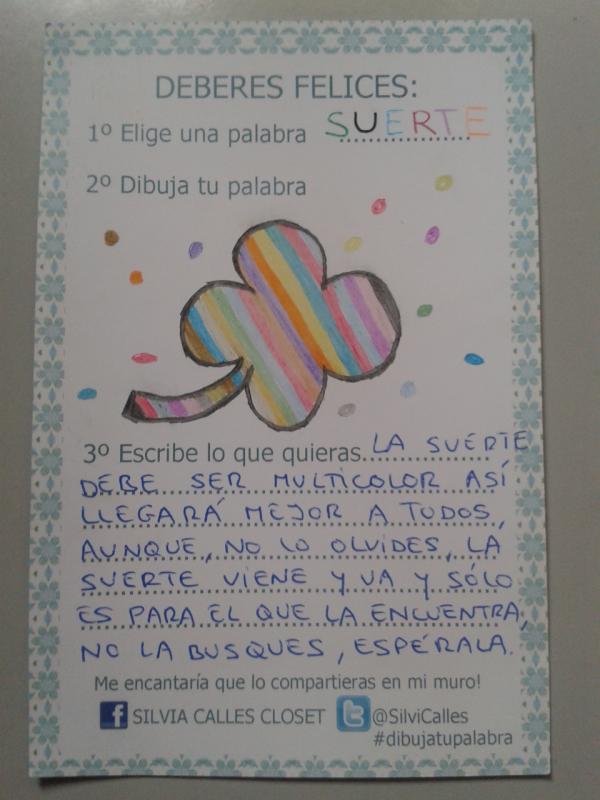 DEBERES FELICES:
1º Elige una palabra SUERTE
2º Dibuja tu palabra
3º Escribe lo que quieras LA SUERTE
DEBE SER MULTICOLOR ASÍ
LLEGARÁ MEJOR A TODOS,
AUNQUE, NO LO OLVIDES, LA
SUERTE VIENE Y VA Y SÓLO
ES PARA EL QUE LA ENCUENTRA,
NO LA BUSQUES, ESPÉRALA.
Me encantaría que lo compartieras en mi muro!
f SILVIA CALLES CLOSET t @SilviCalles
#dibujatupalabra